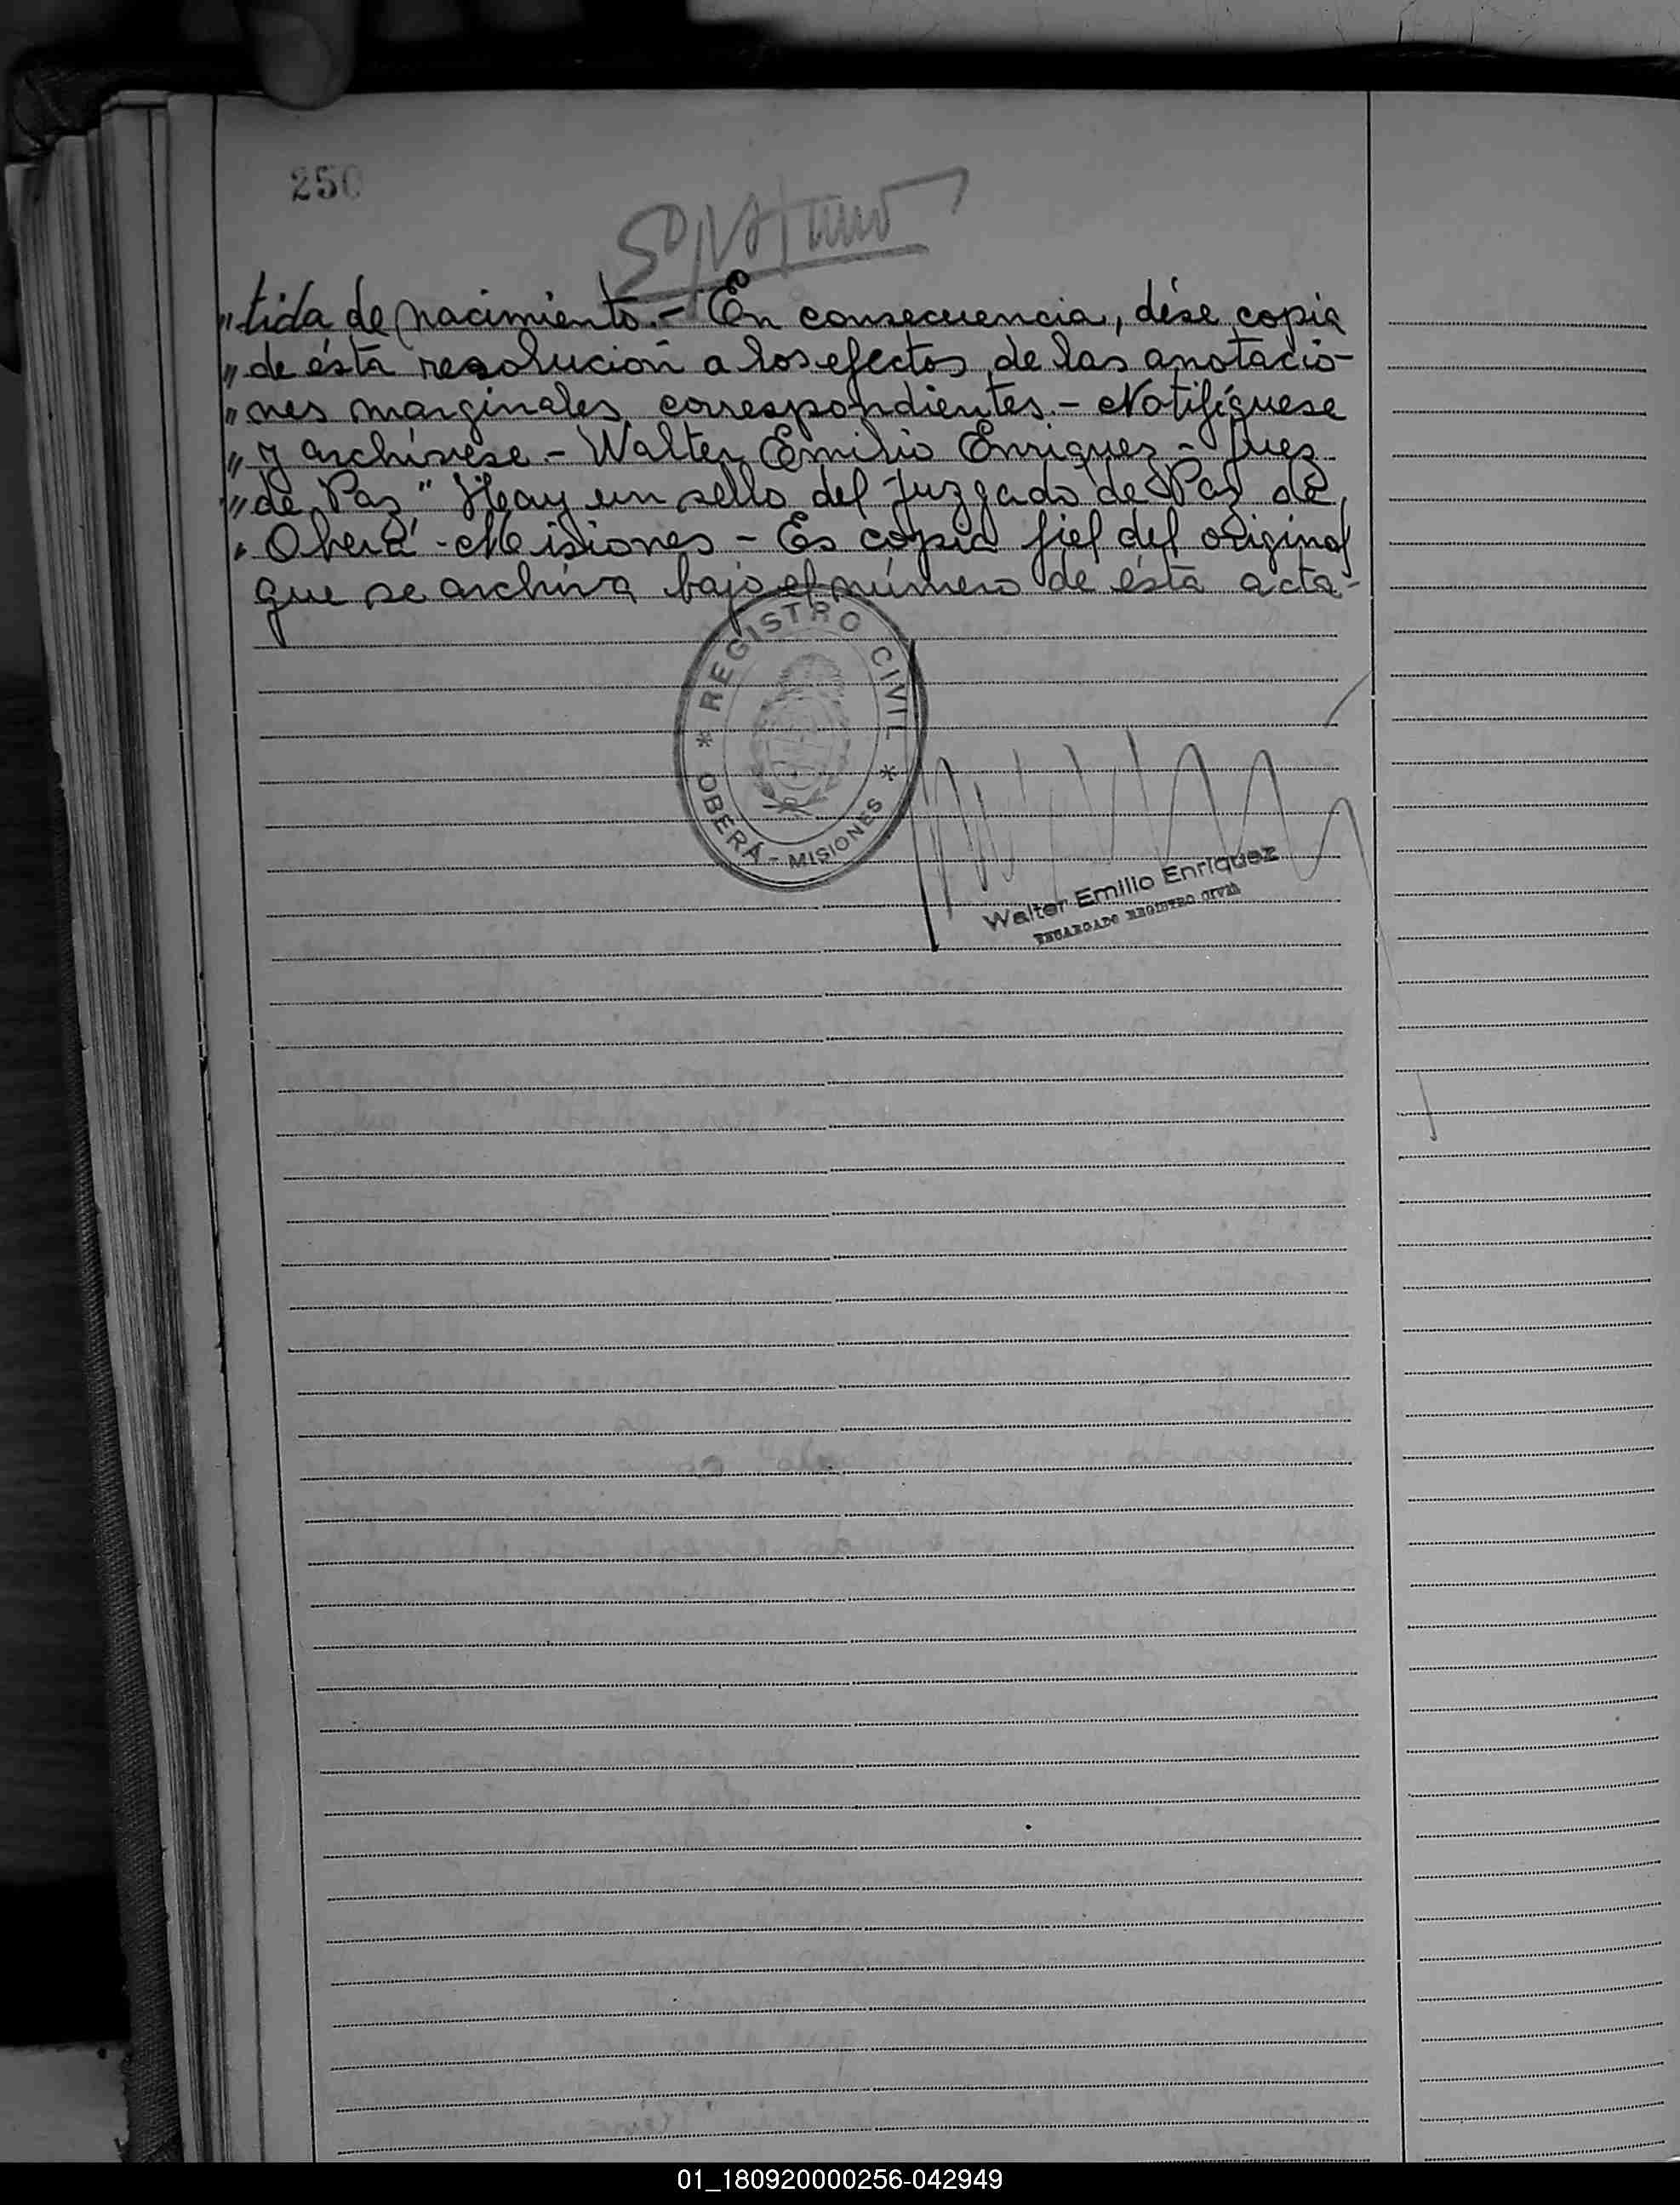 250
"tida de nacimiento.- En consecuencia, dése copia
"de ésta resolución a los efectos de las anotacio-
"nes marginales correspondientes.- Notifíquese
"y archívese - Walter Emilio Enriquez - Juez
"de Paz" Hay un sello del Juzgado de Paz de
" Oberá - Misiones - Es copia fiel del original
que se archiva bajo el número de ésta acta-
* REGISTRO CIVIL *
OBERÁ - MISIONES
Walter Emilio Enriquez
ENCARGADO REGISTRO CIVIL
01_180920000256-042949